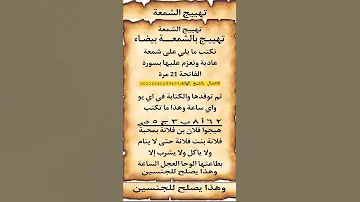 تهييج الشمعة
تهييج الشمعة
تهييج بالشمعـــة بيضـاء
تكتب ما يلي على شمعة
عادية وتعزم عليها بسورة
الفاتحة 21 مرة
ثم توقدها والكتابة في اي يو
واي ساعة وهذا ما تكتب
هيجوا فلان بن فلانة بمحبة
فلانة بنت فلانة حتى لا ينام
ولا ياكل ولا يشرب إلا
بطاعتها الوحا العجل الساعة
وهذا يصلح للجنسين
وهذا يصلح للجنسين